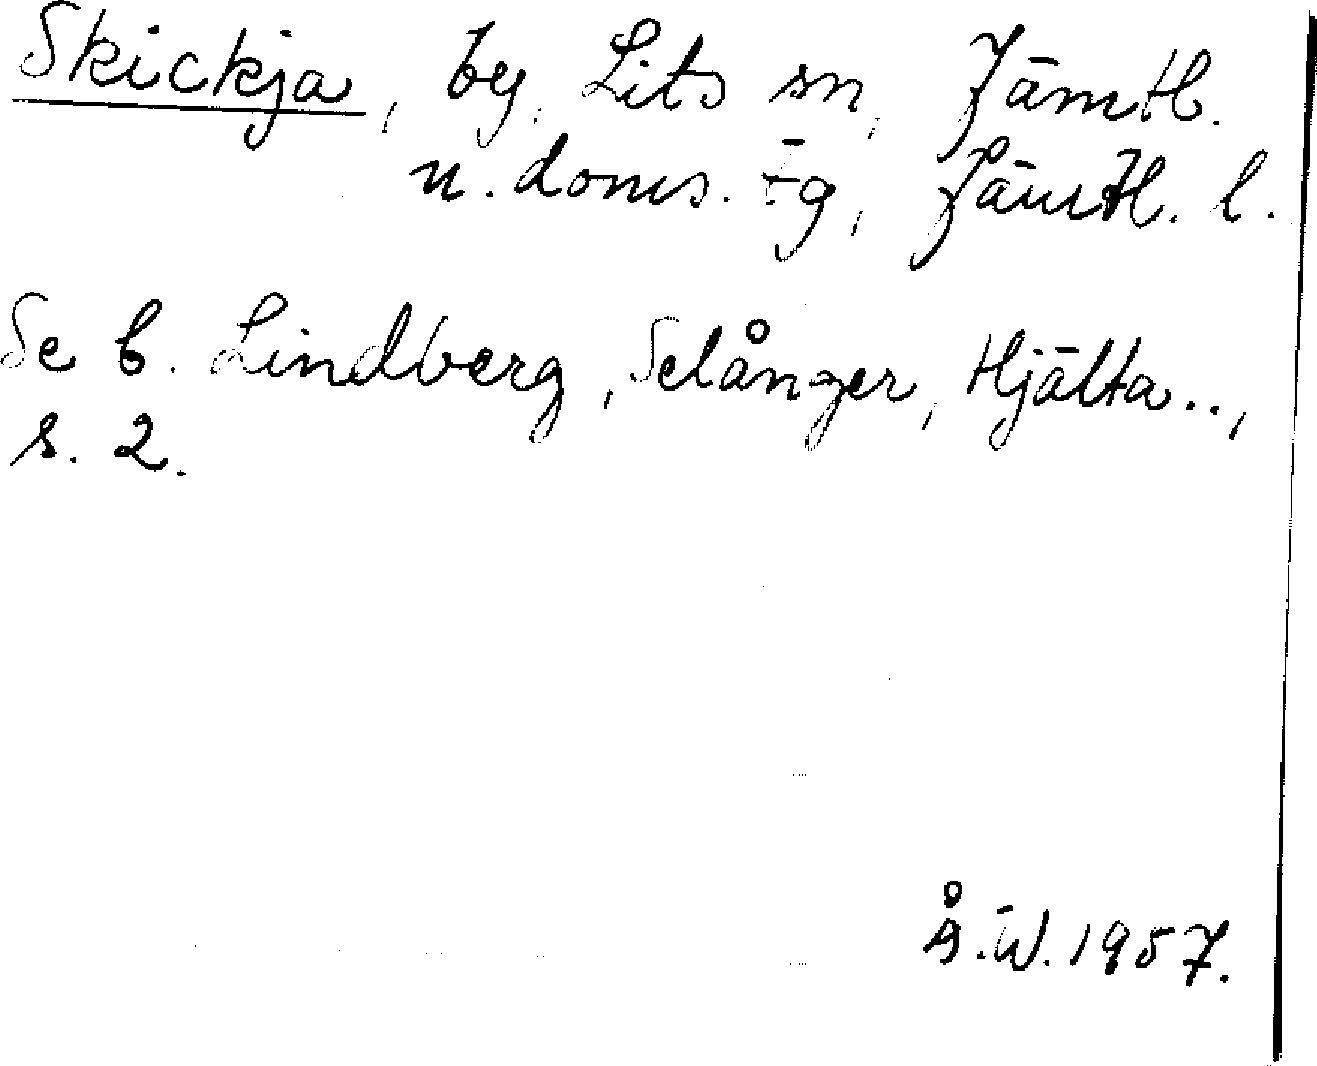 Skickja, by, Lits sn, Jämtl.
n. doms. tg, Jämtl. l.
Se C. Lindberg, Selånger, Hjälta..,
s. 2.
Å.W. 1957.